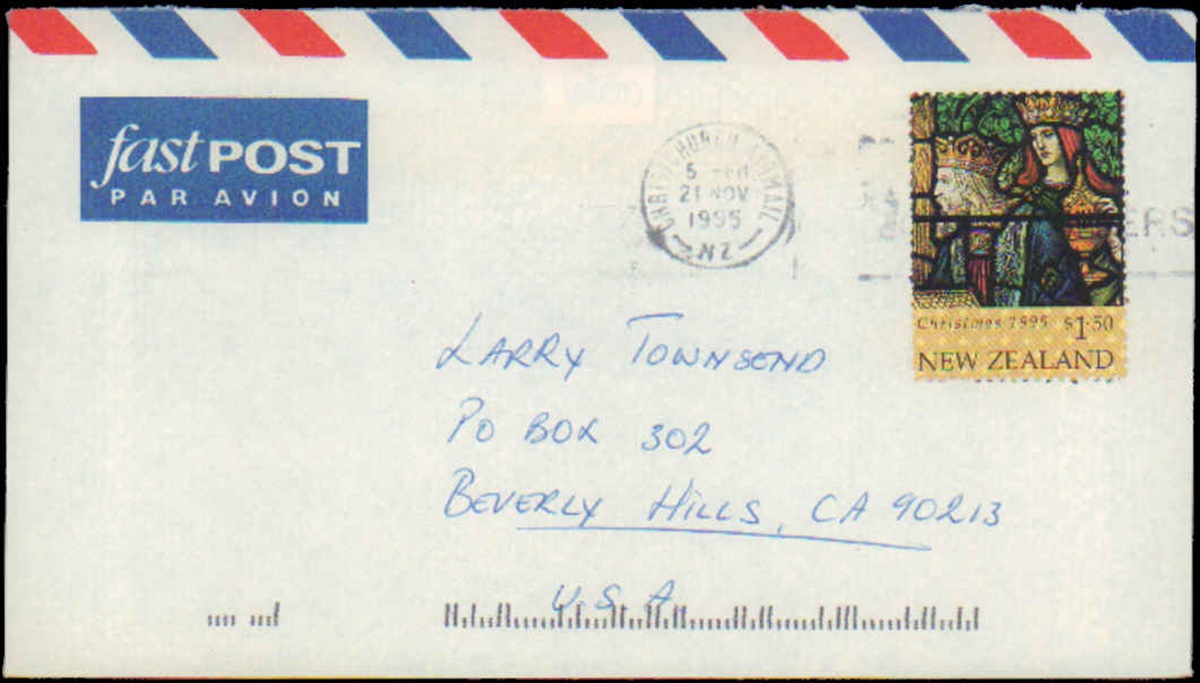 fastPOST
PAR AVION
CHRISTCHURCH
5 PM
21 NOV
1995
NZ
ERS
Christmas 1995 $1.50
NEW ZEALAND
LARRY TOWNSEND
PO BOX 302
BEVERLY HILLS, CA 90213
U.S.A